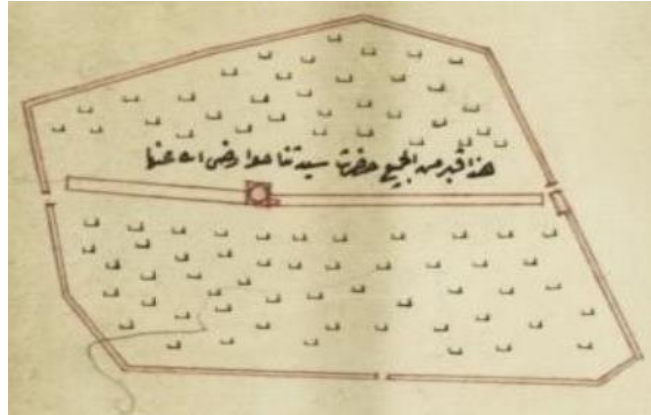 هذا قبر من الجميع حضرت سيدتنا حوا رضى الله عنها